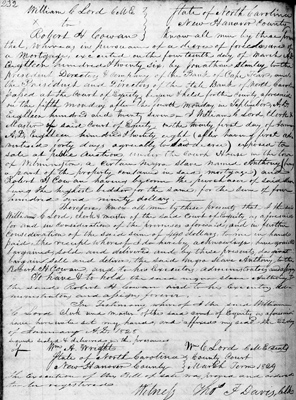 232
William C Lord C&ME State of North Carolina
to New Hanover County
Robert H Cowan Know all men by these presents
that, Whereas in pursuance of a decree of foreclosure of
a Mortgage executed on the fourteenth day of March AD
Eighteen hundred & twenty six by Jonathan to the
President Directors & Company of the Bank of Cape Fear and
the President and Directors of the State Bank of North Carolina
at the Court of Equity
on the fifth monday after the fourth monday in September AD
Eighteen hundred and twenty seven I William C Lord Clerk &
Master of the said Court of Equity on the first day of January
A.D. Eighteen hundred & twenty eight (after having first
advertised forty days agreeably to law) exposed to
sale at public auction under the Court House in the Town
of Wilmington a certain Negro slave named Anthony
(a part of the property contained in said mortgage) and
Robert H Cowan having become the purchaser of said slave
as the highest bidder for the same for the sum of four
hundred and ninety dollars
Therefore Know ye by these presents that I the said
William C Lord, clerk & master of the said Court of Equity as aforesaid
for and in consideration of the premises aforesaid and in further
consideration of the said sum of dollars to me in hand
paid the receipt whereof I do hereby acknowledge have granted
bargained sold and delivered and by these presents do grant
bargain sell and deliver the said Negro Slave Anthony to the said
Robert H Cowan and to his Executors, administrators and assigns
To have & to hold the said Negro slave Anthony to
the said Robert H Cowan and to his Executors, Ad-
ministrators and assigns forever.
In Testimony whereof I the said William
C Lord Clerk and Master of the said Court of Equity as aforesaid
have hereunto set my hand and affixed my seal the day
of January A D. 1828
signed sealed & delivered in the presence
of Wm A. Wright Wm C Lord C&M Equity
State of North Carolina County Court
New Hanover County March Term 1829
The execution of this bill of sale was and ordered
to be registered
Witness Thos F Davis Clk